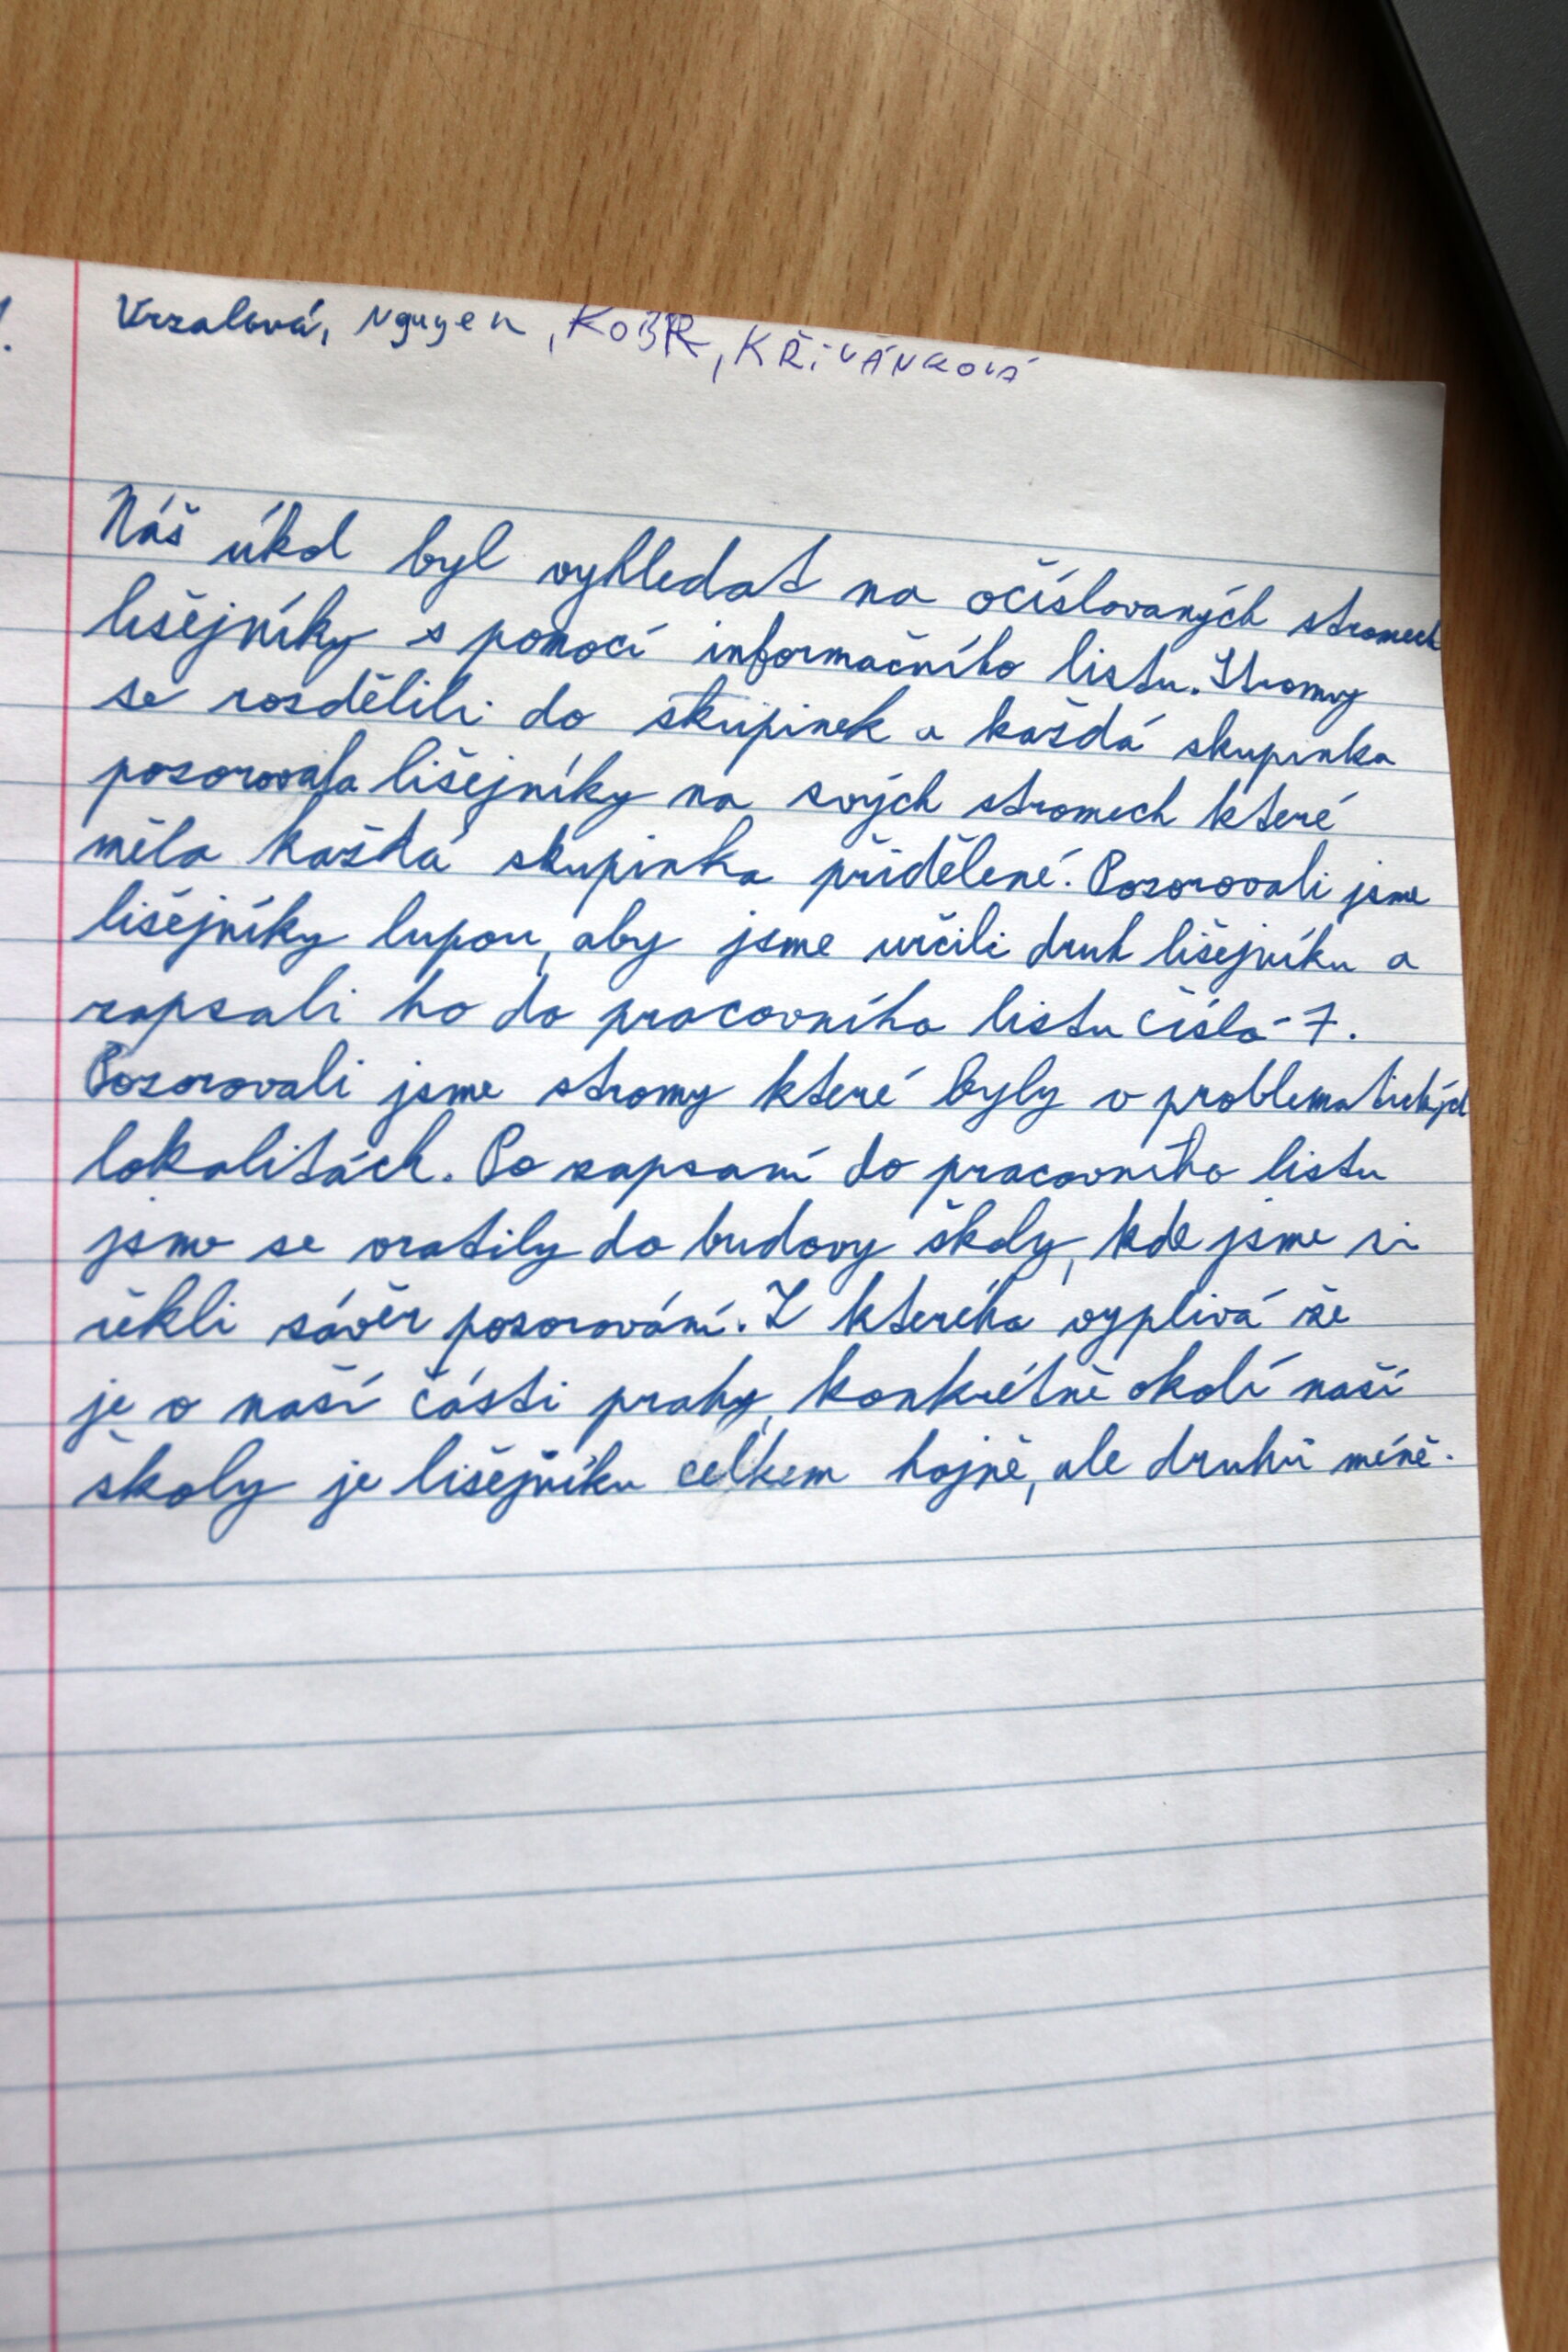 Vrzalová, Nguyen, KOBR, KŘIVÁNKOVÁ
Náš úkol byl vyhledat na očíslovaných stromech
lišejníky s pomocí informačního listu. Stromy
se rozdělili do skupinek a každá skupinka
pozorovala lišejníky na svých stromech které
měla každá skupinka přidělené. Pozorovali jsme
lišejníky lupou, aby jsme určili druh lišejníku a
zapsali ho do pracovního listu čísla 7.
Pozorovali jsme stromy které byly v problematických
lokalitách. Po zapsaní do pracovního listu
jsme se vratily do budovy školy, kde jsme si
řekli závěr pozorování. Z kterého vyplivá že
je v naší části prahy, konkrétně okolí naší
školy je lišejníku celkem hojně, ale druhů méně.